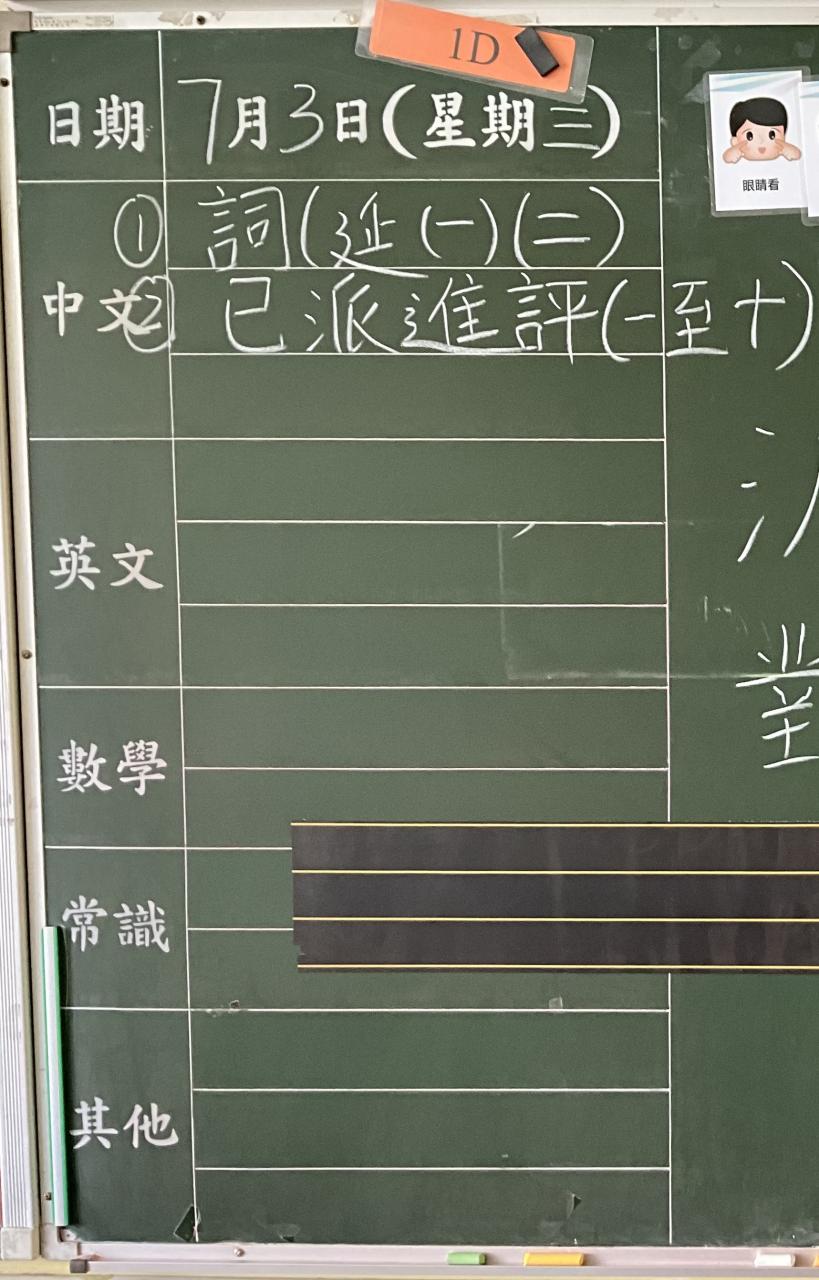 1D
日期 7月3日(星期三)
眼睛看
① 詞(延(一)(二)
中文 ② 已派進評(一至十)
英文
數學
常識
其他